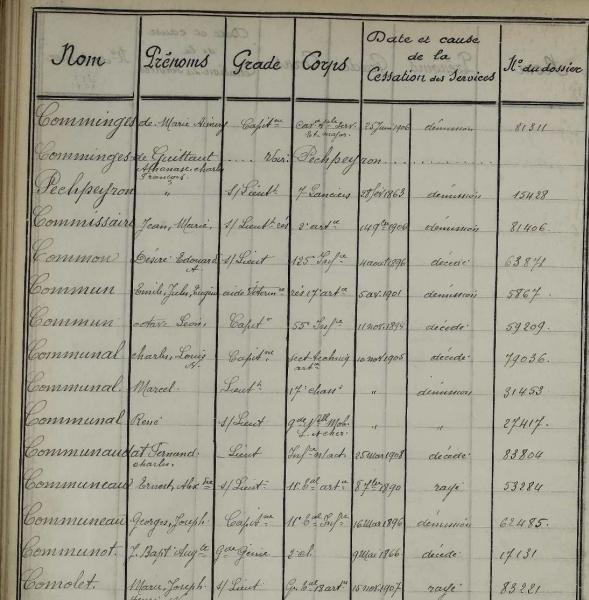 Nom Prénoms Grade Corps Date et cause de la Cessation des Services N° du dossier
Comminges de Marie Aimery Capit ne 25 Juin 1906 démission 81311
Comminges de Guittaut ..... Voir: Pechpeyron
Pechpeyron Athanase, Charles François " s/Lieut t 7 Lanciers 28 fév 1863 démission 15428
Commissaire Jean, Marie, s/Lieut t rés 2 e art ie 14 9bre 1906 démission 81406.
Common Désiré Edouard A. s/Lieut 125 e Inf ie 4 août 1896 décédé 63871
Commun Emile, Jules, Eugène aide Vétérin re rés 17 art ie 5 avr. 1901 démission 5867.
Commun octave Léon. Capit e 55 e Inf ie 11 nov. 1894 décédé 59209.
Communal Charles, Louis Capit ne sect techniq art ie 10 nov 1905 décédé 79036.
Communal. Marcel. Lieut t 17 e chass s " démission 31453
Communal René s/Lieut g de N lle Mob. " " 27417.
Communaudat Fernand Charles. Lieut Inf ie 25 mar 1908 décédé 83804
Communeau Ernest, Alex dre s/Lieut 11 e t al art ie 8 7bre 1890 rayé 53284
Communeau Georges, Joseph Capit ne 11 e t al Inf ie 16 Mar 1896 démission 62485.
Communot. J. Bap t Aug te G de Génie 2 e cl. 9 Mai 1866 décédé 17131
Comolet. Marie, Joseph s/Lieut t al 18 art ie 15 nov. 1907 rayé 83221